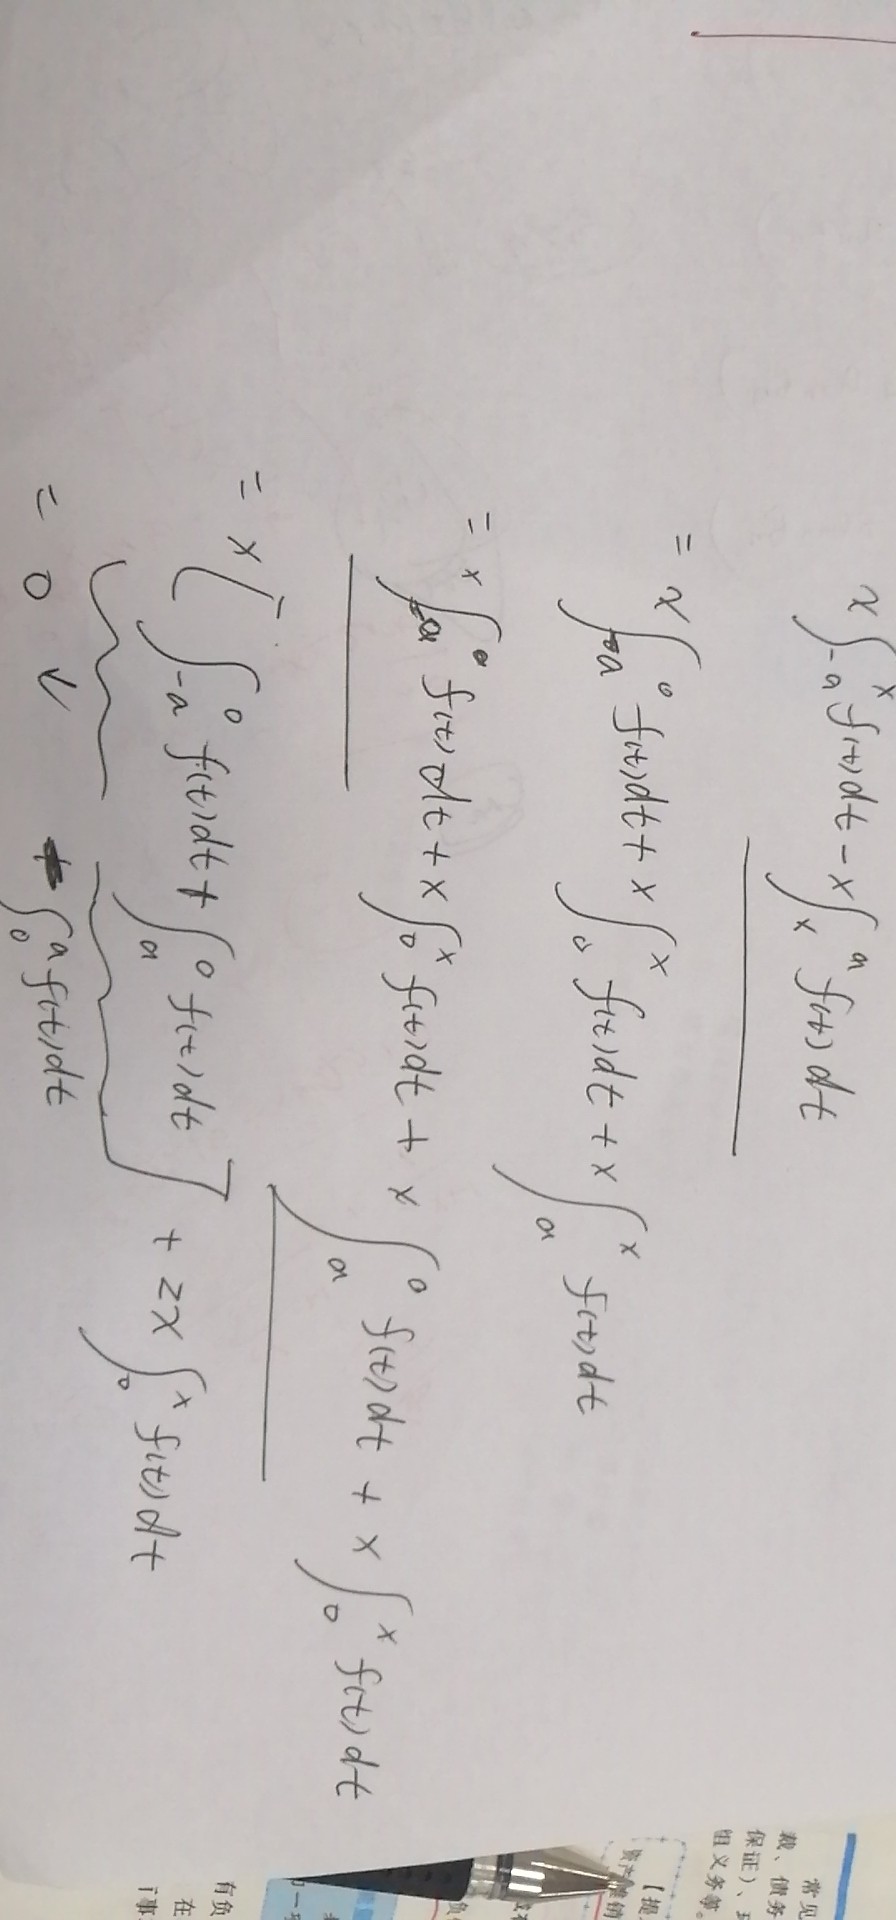 x∫_{-a}^{x} f(t)dt - x∫_{x}^{a} f(t)dt
= x∫_{-a}^{0} f(t)dt + x∫_{0}^{x} f(t)dt + x∫_{a}^{x} f(t)dt
= x∫_{-a}^{0} f(t)dt + x∫_{0}^{x} f(t)dt + x∫_{a}^{0} f(t)dt + x∫_{0}^{x} f(t)dt
= x[∫_{-a}^{0} f(t)dt + ∫_{a}^{0} f(t)dt] + 2x∫_{0}^{x} f(t)dt
= 0 ∫_{0}^{a} f(t)dt
常见
裁、债务
保证）、
组义务等。
【提
销
有负
在